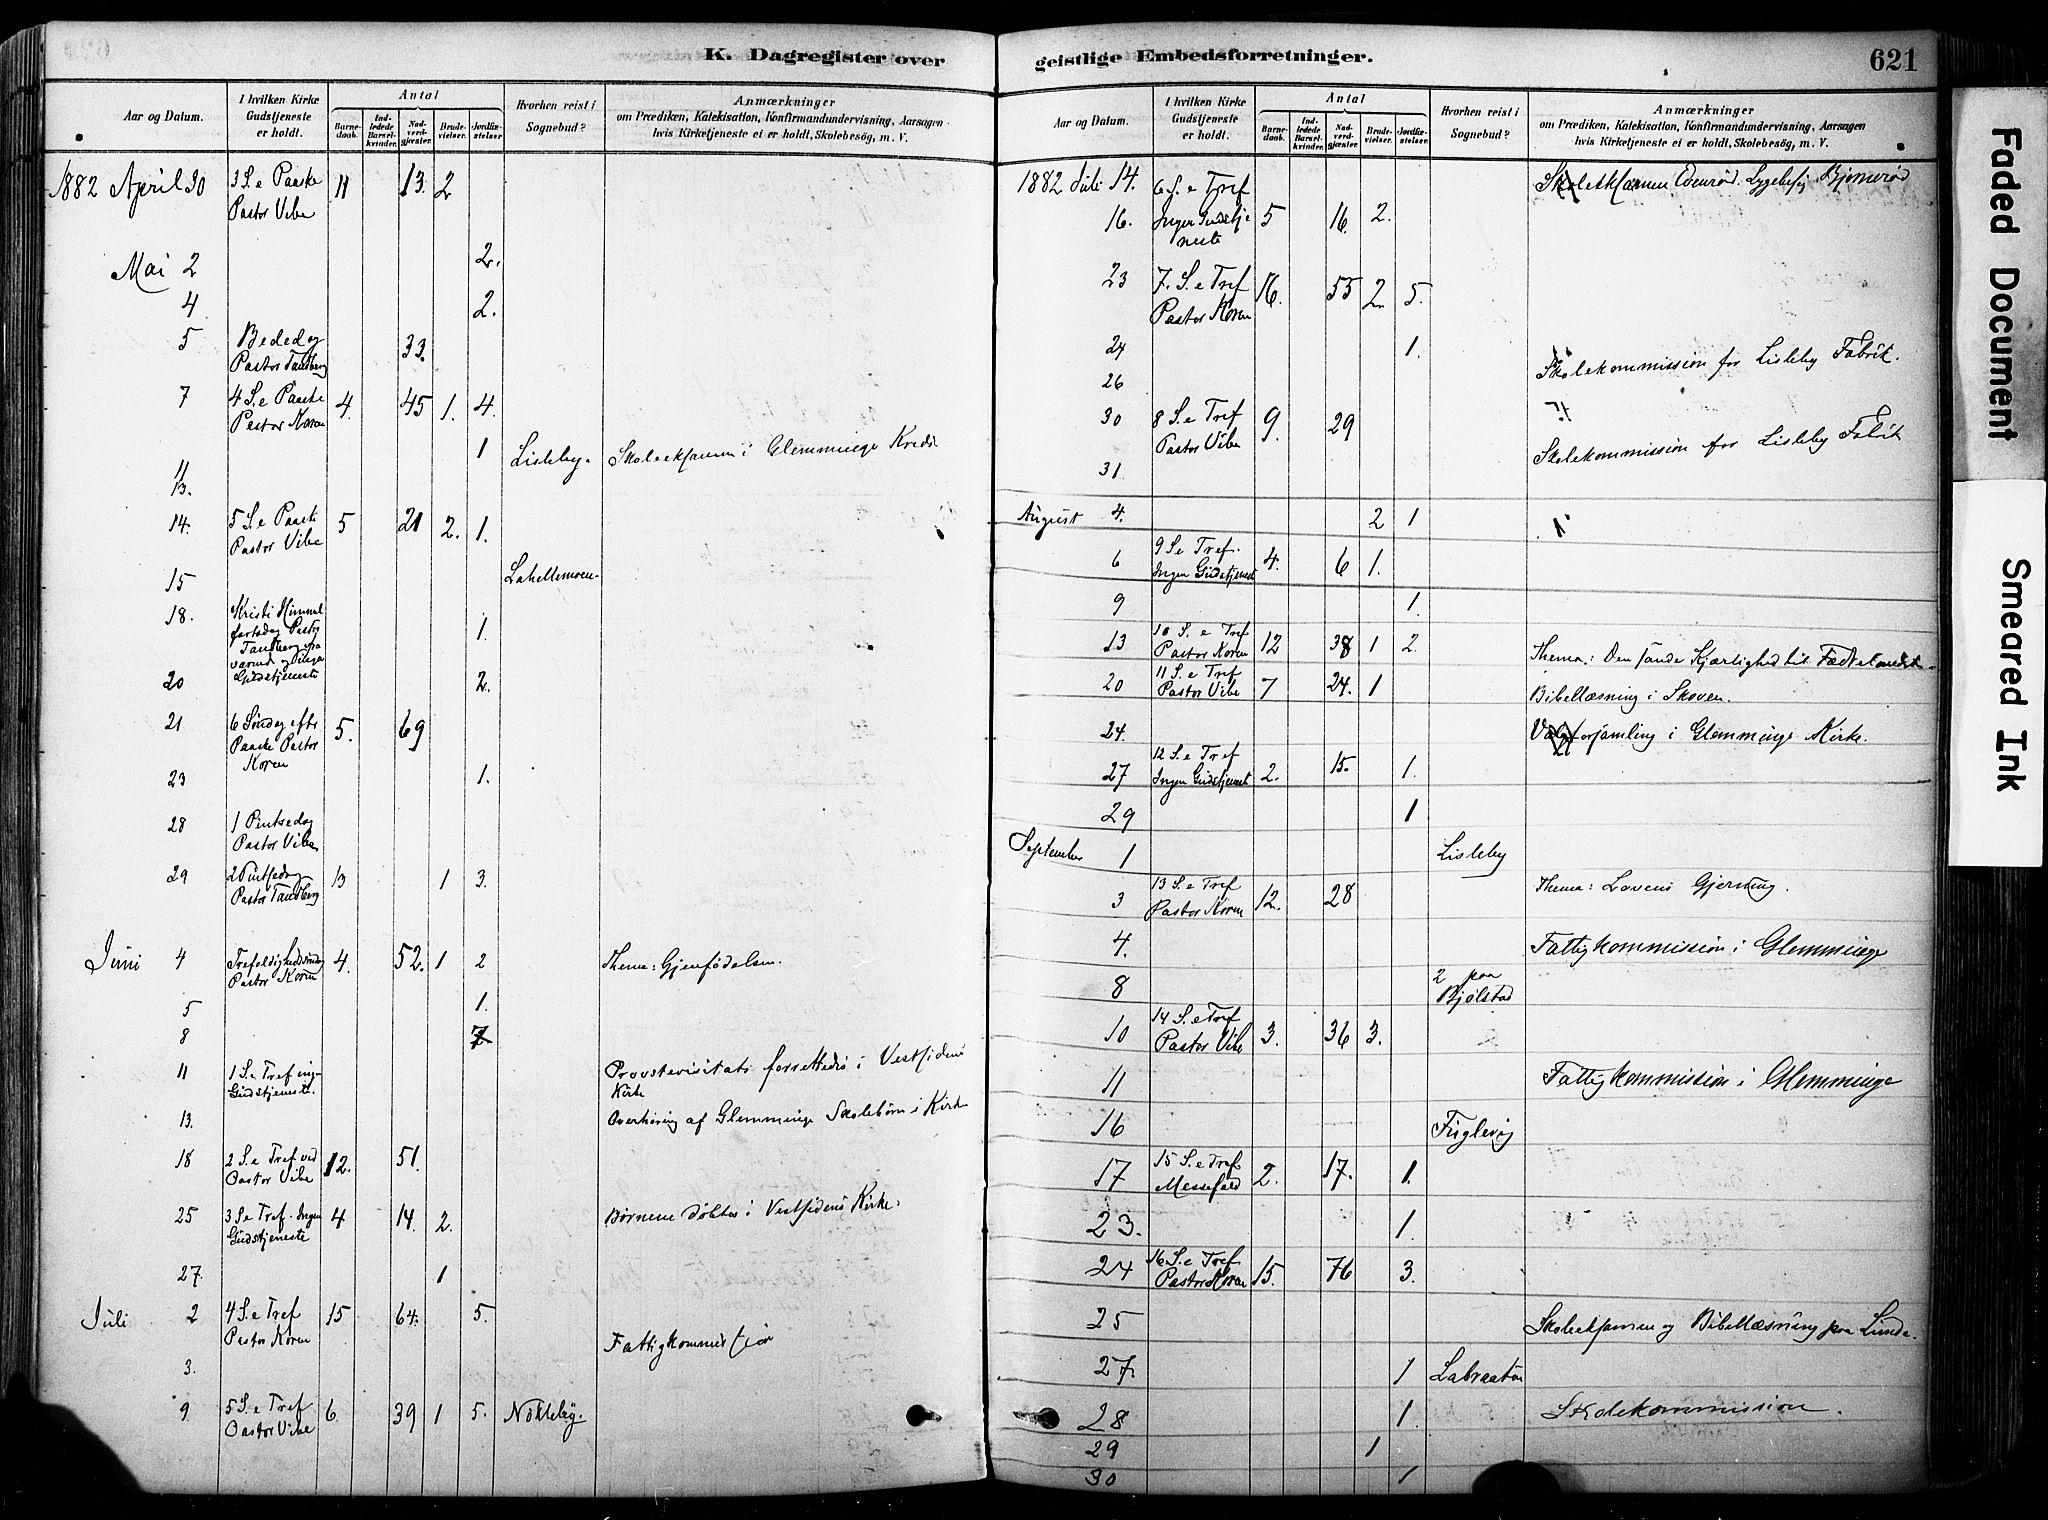 K. Dagregister over
Aar og Datum.
I hvilken Kirke Gudstjeneste er holdt.
Antal
Barnedaab.
Indledede Barselkvinder.
Nadverdgjæster.
Brudevielser.
Jordfæstelser
Hvorhen reist i Sognebud?
Anmærkninger
om Prædiken, Katekisation, Konfirmandundervisning, Aarsagen hvis Kirketjeneste ei er holdt, Skolebesög, m. V.
1882 April 30 3 S. e Paaske 11 13. 2
Pastor Vibe
Mai 2 2.
4 2.
5 Bededag 33.
Pastor Tandberg
7 4 S. e Paaske 4. 45 1. 4.
Pastor Koren
11 1 Lisleby. Skoleeksamen i Glemminge Kreds
13.
14. 5 S. e Paaske 5 21 2. 1.
Pastor Vibe
15
18. Kristi Himmel 1.
fartsdag Pastor
Tandberg fra
værende og Ingen
Gudstjeneste
20 2.
21 6 Søndag efter 5. 69
Paaske Pastor
Koren
23 1.
28 1 Pintsedag
Pastor Vibe
29 2 Pintsedag 13 1 3.
Pastor Tandberg
Juni 4 Trefoldighedssøndag 4. 52. 1 2 Thema: Gjenfødelsen.
Pastor Koren
5 1.
8 2
11 1 S. e Tref ingen Provstevisitats forrettedes i Vestsidens
Gudstjeneste. Kirke
13. Overhøring af Glemminge Skolebørn i Kirke
18 2 S. e Tref ved 12. 51.
Pastor Vibe
25 3 S. e Tref. Ingen 4 14. 2. Børnene døbtes i Vestsidens Kirke.
Gudstjeneste
27. 1
Juli 2 4 S. e Tref 15 64. 5.
Pastor Koren
3. Fattigkommission
9 5 S. e Tref 6. 39 1 5. Nökleby.
Pastor Vibe
geistlige Embedsforretninger.
621
Aar og Datum.
I hvilken Kirke Gudstjeneste er holdt.
Antal
Barnedaab.
Indledede Barselkvinder.
Nadverdgjæster.
Brudevielser.
Jordfæstelser.
Hvorhen reist i Sognebud?
Anmærkninger
om Prædiken, Katekisation, Konfirmandundervisning, Aarsagen hvis Kirketjeneste ei er holdt, Skolebesög, m. V.
1882 Juli 14. 6 S. e Tref
16. Ingen Gudstje 5 16. 2.
neste
23 7. S. e Tref 16. 55 2. 5.
Pastor Koren
24 1.
26 Skolekommission for Lisleby Fabrik.
30 8 S. e Tref 9. 29
Pastor Vibe
31. Skolekommission for Lisleby Fabrik
August 4. 2 1
6 9 S. e Tref. 4. 6 1.
Ingen Gudstjenest
9 1.
13 10 S. e Tref 12 38 1 2. Thema: Den sande Kjærlighed til Fædrelandet
Pastor Koren
20 11 S. e Tref 7 24. 1 Bibellæsning i Skoven.
Pastor Vibe
24 Valgforsamling i Glemminge Kirke.
27 12 S. e Tref 2. 15. 1.
Ingen Gudstjenest
29 1
September 1 Lisleby
3 13 S. e Tref 12. 28 Thema: Lovens Gjerning.
Pastor Koren
4. Fattigkommission i Glemminge
8 2 paa
Bjølstad
10 14 S. e Tref 3. 36 3.
Pastor Vibe
11 Fattigkommission i Glemminge
16 Fuglevig
17 15 S. e Tref 2. 17. 1.
Messefald
23. 1.
24 16 S. e Tref 15. 76 3.
Pastor Koren
25 Skoleeksamen og Bibellæsning paa Lunde.
27 1 Labraaten
28 1. Skolekommission.
29 1
30 1
Faded Document
Smeared Ink